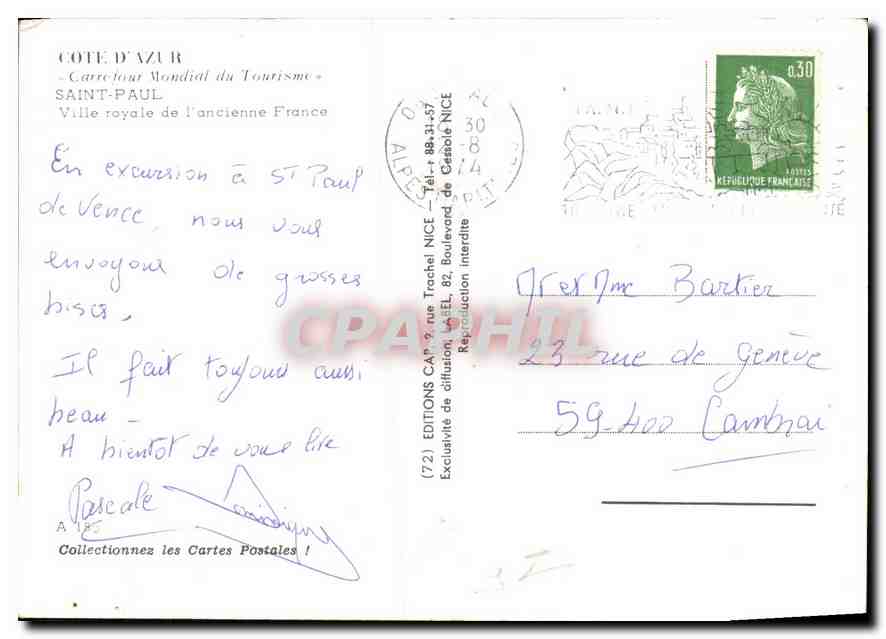 COTE D'AZUR
"Carrefour Mondial du Tourisme"
SAINT-PAUL
Ville royale de l'ancienne France
En excursion à ST Paul
de Vence, nous vous
envoyons de grosses
bises,
Il fait toujours aussi
beau -
A bientot de vous lire
Pascale
A 185
Collectionnez les Cartes Postales !
(72) EDITIONS CAP, 2, rue Trachel NICE — Tél. : 88-31-57
Exclusivité de diffusion, LABEL, 82, Boulevard de Cessole NICE
Reproduction interdite
CPAPHIL
30
-8
ALPES MARITIMES
0,30
POSTES
REPUBLIQUE FRANÇAISE
Mr et Mme Bartier
23 rue de Genève
59-400 Cambrai